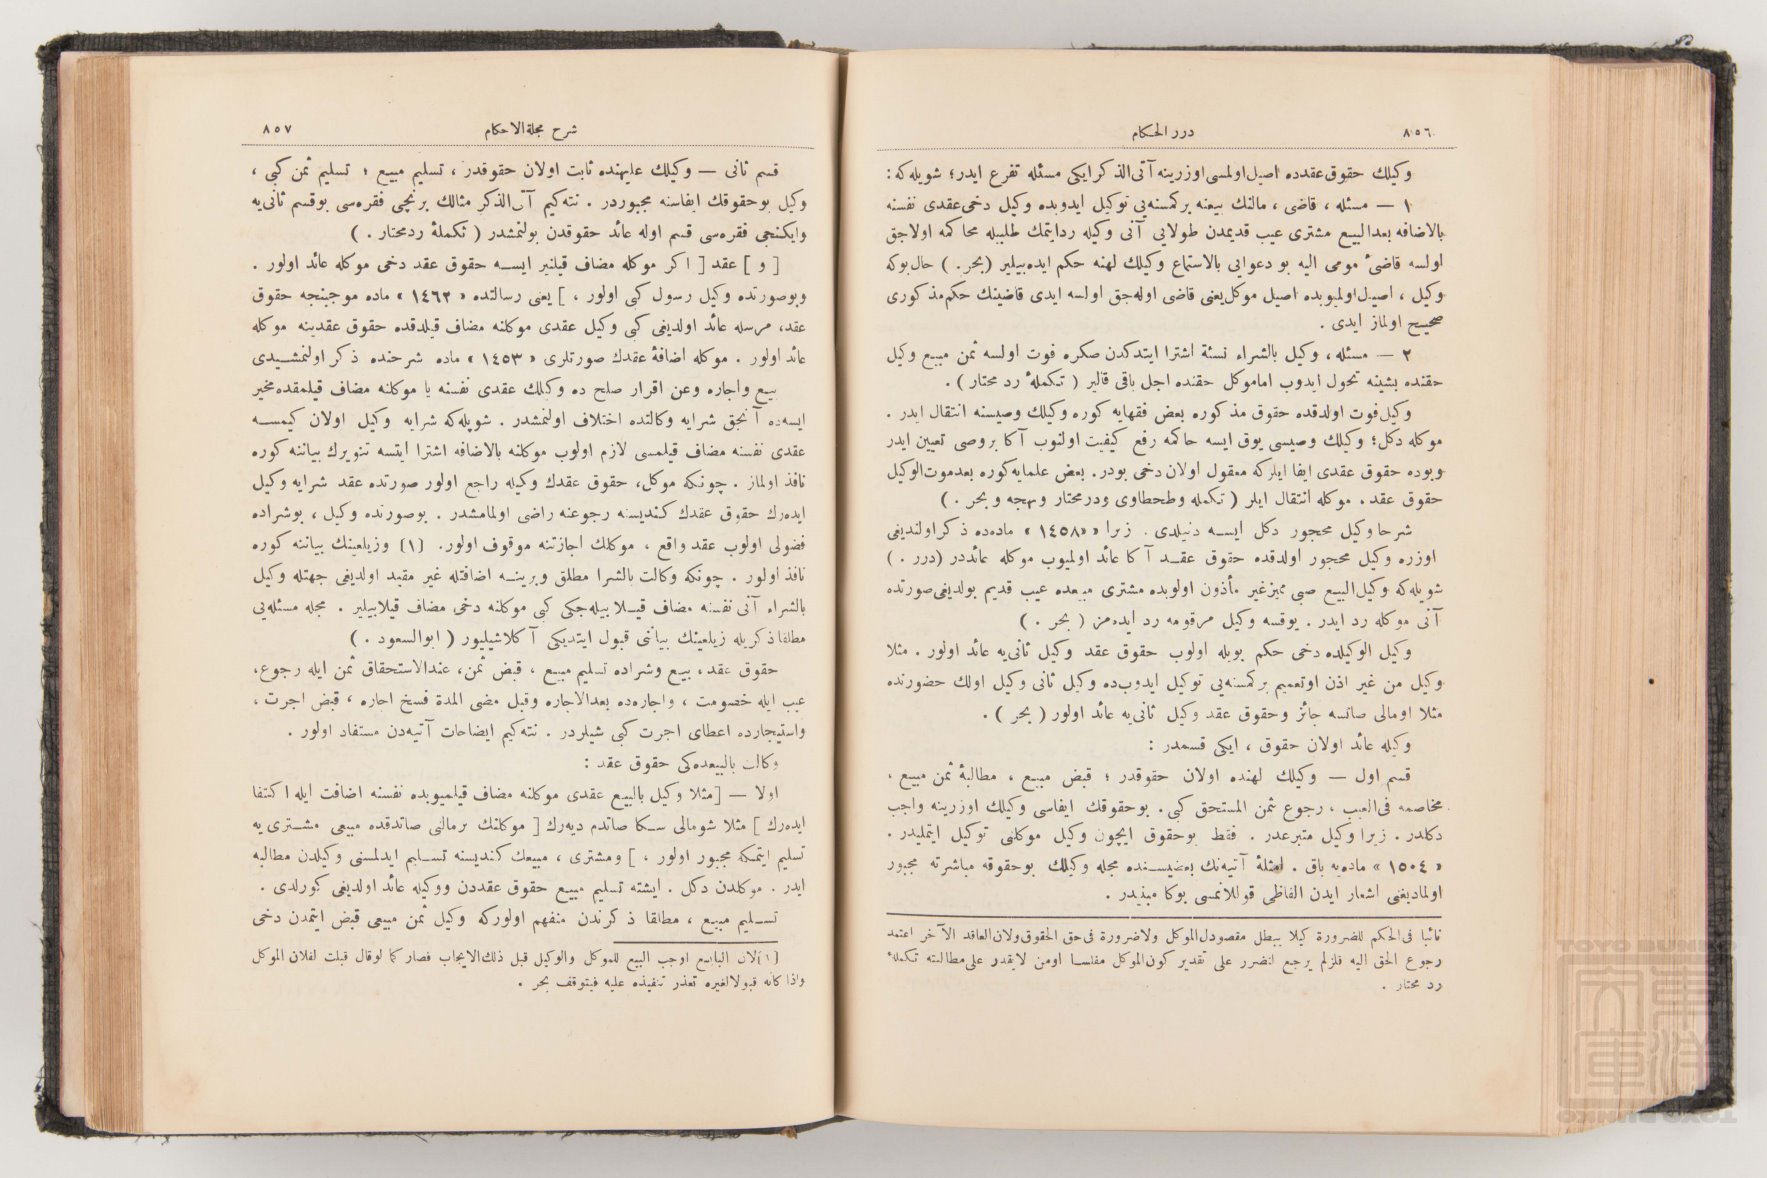 ٨٥٦
درر الحكام
وكيلك حقوق عقدده اصيل اولمسى اوزرينه آتى الذكر ايكى مسئله تفرع ايدر؛ شويله كه:
١ — مسئله، قاضى، مالنك بيعنه بر كمسنه‌يى توكيل ايدوبده وكيل دخى عقدى نفسنه
بالاضافه بعد البيع مشترى عيب قديمدن طولايى آنى وكيله رد ايتمك طلبيله محاكمه اولاجق
اولسه قاضىٔ مومى اليه بو دعوايى بالاستماع وكيلك لهنه حكم ايده‌بيلير (بحر.) حال بوكه
وكيل، اصيل اولميوبده اصيل موكل يعنى قاضى اوله جق اولسه ايدى قاضينك حكم مذكورى
صحيح اولماز ايدى.
٢ — مسئله، وكيل بالشراء نسئة اشترا ايتدكدن صكره فوت اولسه ثمن مبيع وكيل
حقنده پشينه تحول ايدوب اما موكل حقنده اجل باقى قالير (تكملۀ رد محتار).
وكيل فوت اولدقده حقوق مذكوره بعض فقهايه كوره وكيلك وصيسنه انتقال ايدر.
موكله دكل؛ وكيلك وصيسى يوق ايسه حاكمه رفع كيفيت اولنوب آكا بر وصى تعيين ايدر
وبوده حقوق عقدى ايفا ايلر كه معقول اولان دخى بودر. بعض علمايه كوره بعد موت الوكيل
حقوق عقد. موكله انتقال ايلر (تكمله وطحطاوى ودر محتار وبهجه و بحر.)
شرحا وكيل محجور دكل ايسه دنيلدى. زيرا «١٤٥٨» ماده‌ده ذكر اولنديغى
اوزره وكيل محجور اولدقده حقوق عقد آكا عائد اولميوب موكله عائددر (درر.)
شويله كه وكيل البيع صبى مميز غير مأذون اولوبده مشترى مبيعده عيب قديم بولديغى صورتده
آنى موكله رد ايدر. يوقسه وكيل مرقومه رد ايده‌مز (بحر.)
وكيل الوكيلده دخى حكم بويله اولوب حقوق عقد وكيل ثانى‌يه عائد اولور. مثلا
وكيل من غير اذن او تعميم بر كمسنه‌يى توكيل ايدوب‌ده وكيل ثانى وكيل اولك حضورنده
مثلا او مالى صاتسه جائز و حقوق عقد وكيل ثانى‌يه عائد اولور (بحر).
وكيله عائد اولان حقوق، ايكى قسمدر:
قسم اول — وكيلك لهنده اولان حقوقدر؛ قبض مبيع، مطالبۀ ثمن مبيع،
مخاصمه فى العيب، رجوع ثمن المستحق كبى. بو حقوقك ايفاسى وكيلك اوزرينه واجب
دكلدر. زيرا وكيل متبرعدر. فقط بو حقوق ايچون وكيل موكلنى توكيل ايتمليدر.
«١٥٠٤» ماده‌يه باق. امثلۀ آتيه‌نك بعضيسنده مجله وكيلك بو حقوقه مباشرته مجبور
اولماديغنى اشعار ايدن الفاظى قوللانمسى بوكا مبنيدر.
نائبا فى الحكم للضرورة كيلا يبطل مقصود الموكل ولا ضرورة فى حق الحقوق ولان العاقد الآخر اعتمد
رجوع الحق اليه فلو لم يرجع لتضرر على تقدير كون الموكل مفلسا او من لا يقدر على مطالبته تكملۀ
رد محتار.
شرح مجلة الاحكام
٨٥٧
قسم ثانى — وكيلك عليهنده ثابت اولان حقوقدر، تسليم مبيع؛ تسليم ثمن كبى،
وكيل بو حقوقك ايفاسنه مجبوردر. نته كيم آتى الذكر مثالك برنجى فقره‌سى بو قسم ثانى‌يه
وايكنجى فقره‌سى قسم اوله عائد حقوقدن بولنمشدر (تكملۀ رد محتار.)
[و] عقد [اكر موكله مضاف قيلنير ايسه حقوق عقد دخى موكله عائد اولور.
وبو صورتده وكيل رسول كبى اولور،] يعنى رسالتده «١٤٦٢» ماده موجبنجه حقوق
عقد، مرسله عائد اولديغى كبى وكيل عقدى موكلنه مضاف قيلدقده حقوق عقدينه موكله
عائد اولور. موكله اضافۀ عقدك صورتلرى «١٤٥٣» ماده شرحنده ذكر اولنمشيدى
بيع واجاره وعن اقرار صلح ده وكيلك عقدى نفسنه يا موكلنه مضاف قيلمقده مخير
ايسه‌ده آنجق شرايه وكالتده اختلاف اولنمشدر. شويله كه شرايه وكيل اولان كيمسه
عقدى نفسنه مضاف قيلمسى لازم اولوب موكلنه بالاضافه اشترا ايتسه تنويرك بياننه كوره
نافذ اولماز. چونكه موكل، حقوق عقدك وكيله راجع اولور صورتده عقد شرايه وكيل
ايده‌رك حقوق عقدك كنديسنه رجوعنه راضى اولمامشدر. بو صورتده وكيل، بو شراده
فضولى اولوب عقد واقع، موكلك اجازتنه موقوف اولور. (١) وزيلعينك بياننه كوره
نافذ اولور. چونكه وكالت بالشرا مطلق و برينه اضافتله غير مقيد اولديغى جهتله وكيل
بالشراء آنى نفسنه مضاف قيلا بيله‌جكى كبى موكلنه دخى مضاف قيلابيلير. مجله مسئله‌يى
مطلقا ذكريله زيلعينك بياننى قبول ايتديكى آكلاشيليور (ابوالسعود.)
حقوق عقد، بيع وشراده تسليم مبيع، قبض ثمن، عند الاستحقاق ثمن ايله رجوع،
عيب ايله خصومت، واجاره‌ده بعد الاجاره وقبل مضى المدة فسخ اجاره، قبض اجرت،
واستيجارده اعطاى اجرت كبى شيلردر. نته كيم ايضاحات آتيه‌دن مستفاد اولور.
وكالت بالبيعده‌كى حقوق عقد:
اولا — [مثلا وكيل بالبيع عقدى موكلنه مضاف قيلميوبده نفسنه اضافت ايله اكتفا
ايده‌رك] مثلا شو مالى سكا صاتدم ديه‌رك [موكلنك بر مالنى صاتدقده مبيعى مشترى‌يه
تسليم ايتمكه مجبور اولور،] ومشترى، مبيعك كنديسنه تسليم ايدلمسنى وكيلدن مطالبه
ايدر. موكلدن دكل. ايشته تسليم مبيع حقوق عقددن و وكيله عائد اولديغى كورلدى.
تسليم مبيع، مطلقا ذكرندن منفهم اولور كه وكيل ثمن مبيعى قبض ايتمدن دخى
(١) لان البايع اوجب البيع للموكل والوكيل قبل ذلك الايجاب فصار كما لو قال قبلت لفلان الموكل
واذا كانه قبولا لغيره تعذر تنفيذه عليه فيتوقف بحر.
TOYO BUNKO